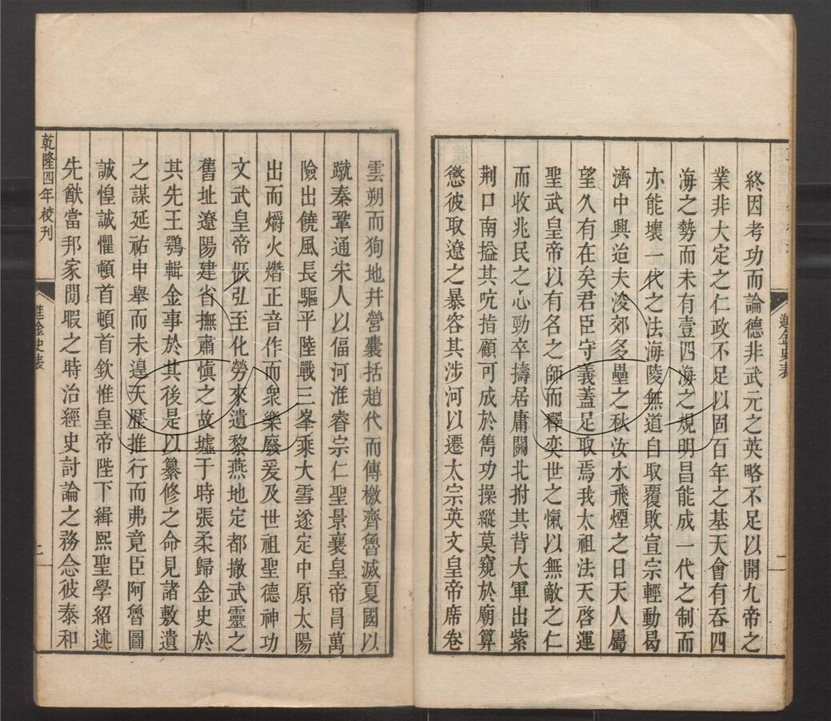 終因考功而論德非武元之英略不足以開九帝之
業非大定之仁政不足以固百年之基天會有吞四
海之勢而未有壹四海之規明昌能成一代之制而
亦能壞一代之法海陵無道自取覆敗宣宗輕動曷
濟中興迨夫浚郊多壘之秋汝水飛煙之日天人屬
望久有在矣君臣守義蓋足取焉我太祖法天啓運
聖武皇帝以有名之師而釋奕世之愾以無敵之仁
而收兆民之心勁卒擣居庸關北拊其背大軍出紫
荆口南搤其吭指顧可成於雋功操縱莫窺於廟算
懲彼取遼之暴容其涉河以遷太宗英文皇帝席卷
進金史表
二
雲朔而狥地幷營囊括趙代而傳檄齊魯滅夏國以
蹴秦鞏通宋人以偪河淮睿宗仁聖景襄皇帝冒萬
險出饒風長驅平陸戰三峯乘大雪遂定中原太陽
出而爝火熸正音作而衆樂廢爰及世祖聖德神功
文武皇帝恢弘至化勞來遺黎燕地定都撤武靈之
舊址遼陽建省撫肅慎之故墟于時張柔歸金史於
其先王鶚輯金事於其後是以纂修之命見諸敷遺
之謀延祐申舉而未遑天歷推行而弗竟臣阿魯圖
誠惶誠懼頓首頓首欽惟皇帝陛下緝熙聖學紹述
先猷當邦家閒暇之時治經史討論之務念彼泰和
乾隆四年校刊
進金史表